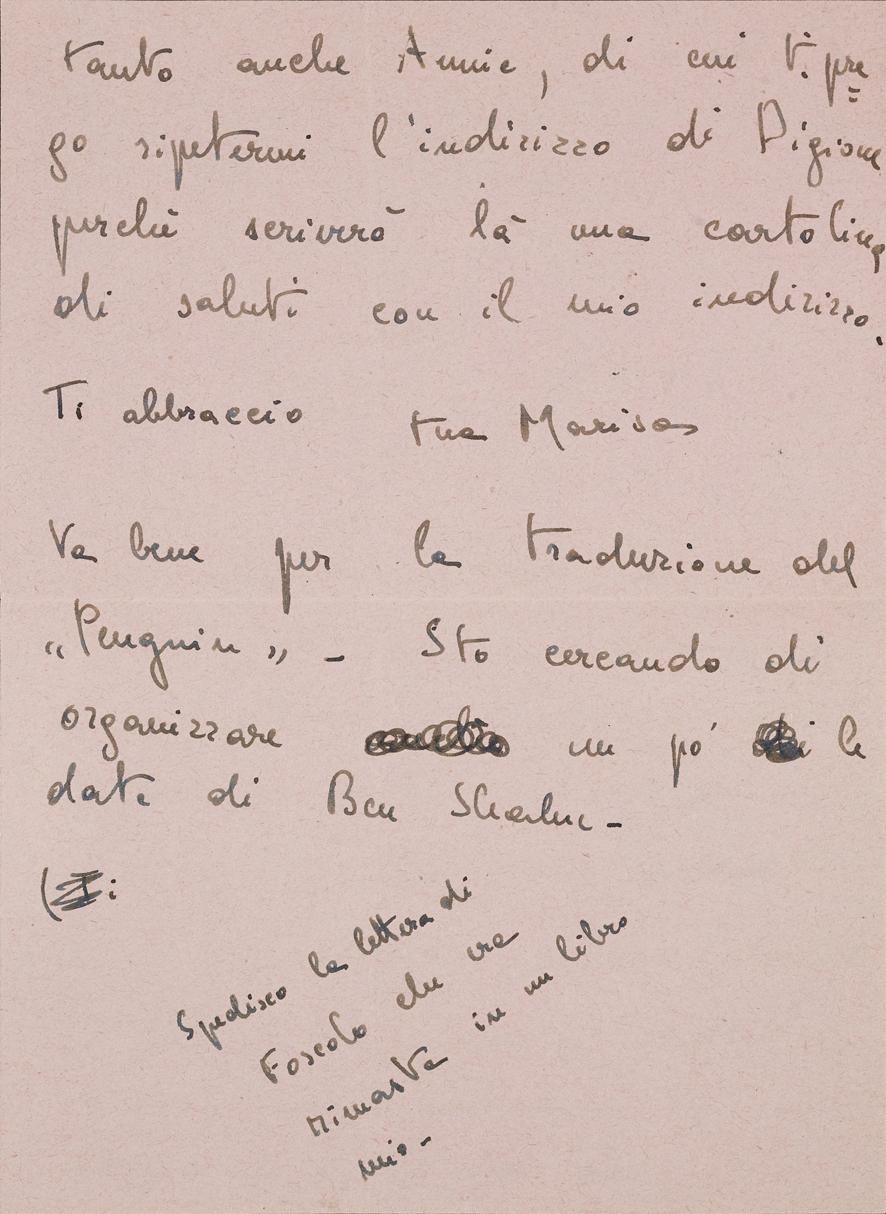 tanto anche Annie, di cui ti pre
go ripetermi l'indirizzo di Digione
perchè scriverò là una cartolina
di saluti con il mio indirizzo.
Ti abbraccio tua Marisa
Va bene per la traduzione del
„Penguin” – Sto cercando di
organizzare un po' le
date di Ben Shahn –
Spedisco la lettera di
Foscolo che era
rimasta in un libro
mio –